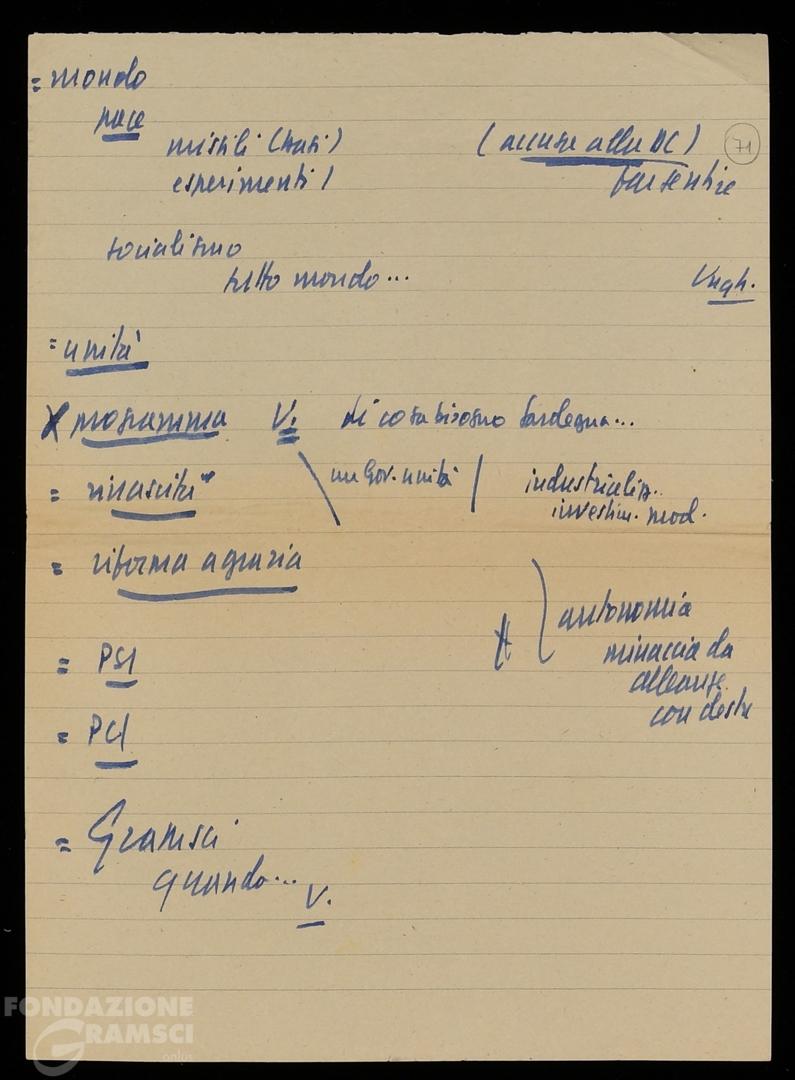 = mondo
pace
missili (basi)
(accuse alla DC)
71
esperimenti /
far sentire
socialismo
tutto mondo...
Ungh.
= unità
X programma V. di cosa bisogno Sardegna...
= rinascita
un Gov. unità
industrializ.
investim. mod.
= riforma agraria
autonomia
minaccia da
alleanze
con destre
= PSI
= PCI
= Gramsci
quando... V.
FONDAZIONE
GRAMSCI
onlus